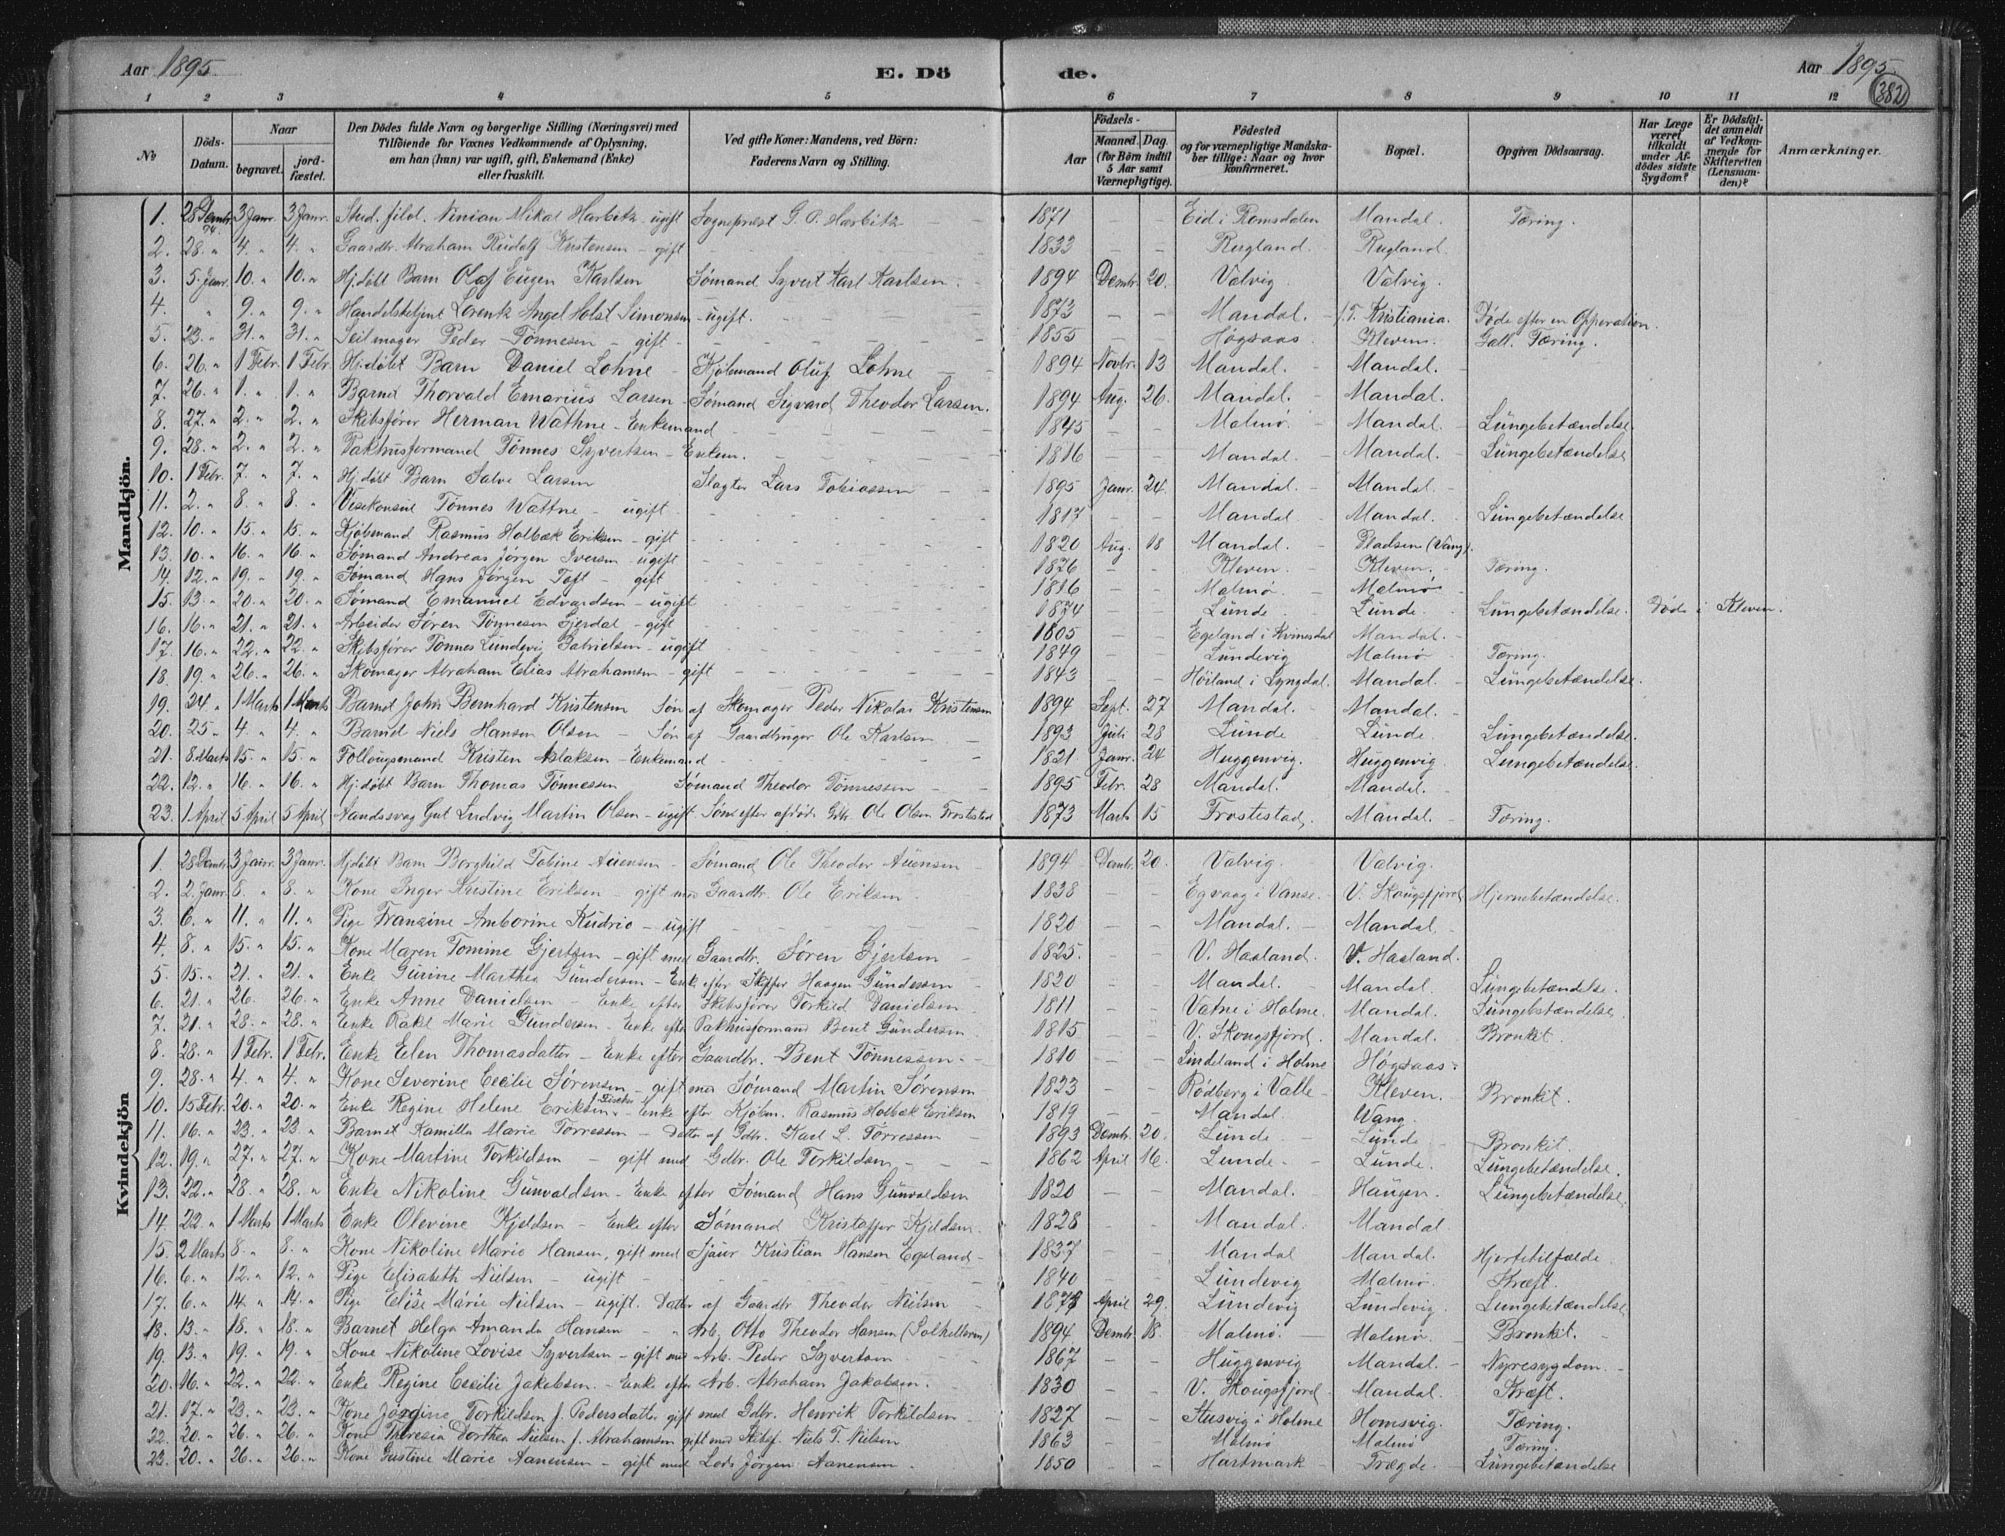 Aar 1895
E. Dö
de.
Aar 1895
382
1 2 3 4 5 6 7 8 9 10 11 12
No
Döds-Datum.
Naar
begravet.
jord-fæstet.
Den Dödes fulde Navn og borgerlige Stilling (Næringsvei) med
Tilföiende for Voxnes Vedkommende af Oplysning,
om han (hun) var ugift, gift, Enkemand (Enke)
eller fraskilt.
Ved gifte Koner: Mandens, ved Börn:
Faderens Navn og Stilling.
Födsels-
Aar
Maaned. Dag.
(for Börn indtil 5 Aar samt Værnepligtige).
Födested
og for værnepligtige Mandska-
ber tillige: Naar og hvor
konfirmeret.
Bopæl.
Opgiven Dödsaarsag.
Har Læge været tilkaldt under Af-dödes sidste Sygdom?
Er Dödsfal-det anmeldt af Vedkom-mende for Skifteretten (Lensman-den)?
Anmærkninger.
Mandkjön.
1. 28 Dembr. 94. 3 Janr. 3 Janr. Stud. Ninian Mikal Harbitz - ugift Sogneprest G. P. Harbitz 1871 - - Eid i Romsdalen Mandal. Tæring.
2. 28. " 4. " 4. " Gaardbr. Abraham Rudolf Kristensen - gift 1833 - - Rugland. Rugland.
3. 5. Janr. 10. " 10. " Hj.døbt Barn Olaf Eugen Karlsen Sømand Syvert Karl Karlsen. 1894 Dembr. 20. Valvig. Valvig.
4. " 9. " 9. " Handelsbetjent Lorentz Angel Holst Simonsen - ugift. 1873 - - Mandal. - Kristiania. Døde efter en Opperation.
5. 23. " 31. " 31. " Seilmager Peder Tønnesen - gift - 1855 - - Høgsaas - Kleven. Gall. Tæring.
6. 26. " 1 Febr. 1 Febr. Hj.døbt Barn Daniel Lohne - Kjøbmand Oluf Lohne 1894 Novbr. 13 Mandal. - Mandal.
7. 26. " 1. " 1. " Barnet Thorvald Emarius Larsen - Sømand Sigvard Theodor Larsen. 1894 Aug. 26. Mandal. - Mandal.
8. 27. " 2. " 2. " Skibsfører Herman Wathne - Enkemand 1845 - - Malmø. Mandal. - Lungebetændelse.
9. 28. " 2. " 2. " Pakhusformand Tønnes Syvertsen - Enkem. 1816 - - Mandal. - Mandal. Lungebetændelse
10. 1 Febr. 7. " 7. " Hj.døbt Barn Salve Larsen Slagter Lars Tobiassen 1895 Janr. 24. Mandal. - Mandal.
11. 2. " 8. " 8. " Visekonsul Tønnes Wattne - ugift 1817 - - Mandal. Mandal. Lungebetændelse
12. 10. " 15. " 15. " Kjøbmand Rasmus Holbæk Eriksen - gift 1820 Aug. 18 Mandal. - Pladsen (Vang).
13. 10. " 16. " 16. " Sømand Andreas Jörgen Iversen - ugift 1876 - - Kleven. Kleven. Tæring.
14. 12. " 19. " 19. " Sømand Hans Jörgen Toft - gift 1816 - - Malmø Malmø
15. 13. " 20. " 20. " Sømand Emanuel Edvardsen - ugift 1874 - - Lunde Lunde. Lungebetændelse. Døde i Kleven.
16. 16. " 21. " 21. " Arbeider Søren Tønnesen Gjerdal - gift 1805 - - Egeland i Kvinesdal Mandal.
17. 16. " 22. " 22. " Skibsfører Tønnes Lundevig Gabrielsen - ugift 1849 - - Lundevig Malmø - Tæring.
18. 19. " 26. " 26. " Skomager Abraham Elias Abrahamsen - gift 1843 - - Høiland i Lyngdal. Mandal. - Lungebetændelse.
19. 24. " 1 Marts 1 Marts Barnet John Bernhard Kristensen Søn af Skomager Peder Nikolai Kristensen 1894 Sept. 27 Mandal. - Mandal. -
20. 25. " 4. " 4. " Barnet Niels Hansen Olsen - Søn af Gaardbruger Ole Karlsen 1893 Juli 28 Lunde Lunde. Lungebetændelse.
21. 8. Marts 15. " 15. " Follougsmand Kristen Aslaksen - Enkemand 1821 Janr. 24 Huggenvig. Huggenvig. Lungebetændelse.
22. 12. " 16. " 16. " Hj.døbt Barn Thomas Tønnessen Sømand Theodor Tønnessen 1895 Febr. 28 Mandal. Mandal. -
23. 1 April 5 April 5 April Aandssvag Gut Ludvig Martin Olsen - ugift Søn efter afdøde Gdbr. Ole Olsen Frostestad 1873 Marts 15 Frostestad, Mandal. - Tæring.
Kvindekjön
1. 28 Dembr. 3 Janr. 3 Janr. Hj.døbt Barn Borghild Tobine Auensen - Sømand Ole Theodor Auensen 1894 Dembr. 20. Valvig. Valvig.
2. 2. Janr. 8. " 8. " Kone Inger Kristine Eriksen - gift med Gaardbr. Ole Eriksen. 1838 - - Egvaag i Vanse. V. Skougsfjord Hjernebetændelse.
3. 6. " 11. " 11. " Pige Fransine Amborine Kudrio - ugift 1820 - - Mandal. - Mandal.
4. 8. " 15. " 15. " Kone Maren Tomine Gjertsen - gift med Gaardbr. Søren Gjertsen 1825. - - V. Haaland. V. Haaland.
5. 15. " 21. " 21. " Enke Gurine Marthea Gundersen - Enke efter Skipper Haagen Gundersen 1820 - - Mandal. - Mandal. Lungebetændelse.
6. 21. " 26. 26. " Enke Anne Danielsen - Enke efter Skibsfører Torkild Danielsen 1811 - - Vatne i Holme. Mandal. Lungebetændelse,
7. 21. " 28. " 28. " Enke Rakel Marie Gundersen - Enke efter Pakhusformand Bent Gundersen 1815 - - V. Skougsfjord. Mandal. Bronkit.
8. 28. " 1 Febr. 1 Febr. Enke Elen Thomasdatter - Enke efter Gaardbr. Bent Tønnessen. 1810 - - Lindeland i Holme Høgsaas.
9. 28. " 4. " 4. " Kone Severine Cecilie Sørensen - gift med Sømand Martin Sørensen 1823 - - Rødberg i Valle - Kleven. Bronkit.
10. 15 Febr. 20. " 20. " Enke Regine Helene Eriksen - Enke efter Kjøbm. Rasmus Holbæk Eriksen 1819 - - Mandal. Wang.
11. 16. " 23. " 23 " Barnet Kamilla Marie Torressen - Datter af Gdbr. Karl L. Torressen 1893 Dembr. 20. Lunde. - Lunde - Bronkit.
12. 19. " 27. " 27. " Kone Martine Torkildsen - gift med Gdbr. Ole Torkildsen 1862 April 16. Lunde. - Lunde. Lungebetændelse.
13. 22. " 28. " 28. " Enke Nikoline Gunvaldsen - Enke efter Sømand Hans Gunvaldsen 1820 - - Mandal. - Haugen. Lungebetændelse,
14. 22. " 1 Marts 1 Marts Enke Olevine Kjeldsen - Enke efter Sømand Kristoffer Kjeldsen. 1828 - - Mandal. Mandal.
15. 2 Marts 8. " 8. " Kone Nikoline Marie Hansen, gift med Sjauer Kristian Hansen Egeland - 1837 - - Mandal Mandal. Hjertetilfælde.
16. 6. " 12. " 12. " Pige Elisabeth Nielsen - ugift - 1840 - - Lundevig Malmø. Kræft.
17. 6. " 14. " 14. " Pige Elise Marie Nielsen - ugift. Datter af Gaardbr Theodor Nielsen 1873 April 29. Lundevig Lundevig. Lungebetændelse.
18. 13. " 18. " 18. " Barnet Helga Amanda Hansen - " Arb. Otto Theodor Hansen 1894 Dembr. 18. Malmø. Malmø. Bronkit. -
19. 13. " 19. " 19. " Kone Nikoline Lovise Syvertsen - gift med Arb. Peder Syvertsen 1867 - - Huggenvig Mandal. - Nyresygdom. -
20. 16. " 22. " 22. " Enke Regine Cecilie Jakobsen. - Enke efter Arb. Abraham Jakobsen. 1830 - - V. Skougsfjord - Mandal. - Kræft.
21. 17. " 23. " 23. " Kone Jørgine Torkildsen f. Pedersdatter gift med Gdbr. Henrik Torkildsen 1827 - - Stusvig i Holme Homsvig. Tæring.
22. 20. " 26. " 26. " Kone Theresia Dorthea Nielsen f. Abrahamsen gift med Skibsf. Niels T. Nielsen 1863 - - Malmø Malmø Tæring.
23. 20. " 26. " 26. " Kone Gustine Marie Aanensen - gift med Lods Jørgen Aanensen. 1850 - - Hartmark - Frægde. Lungebetændelse